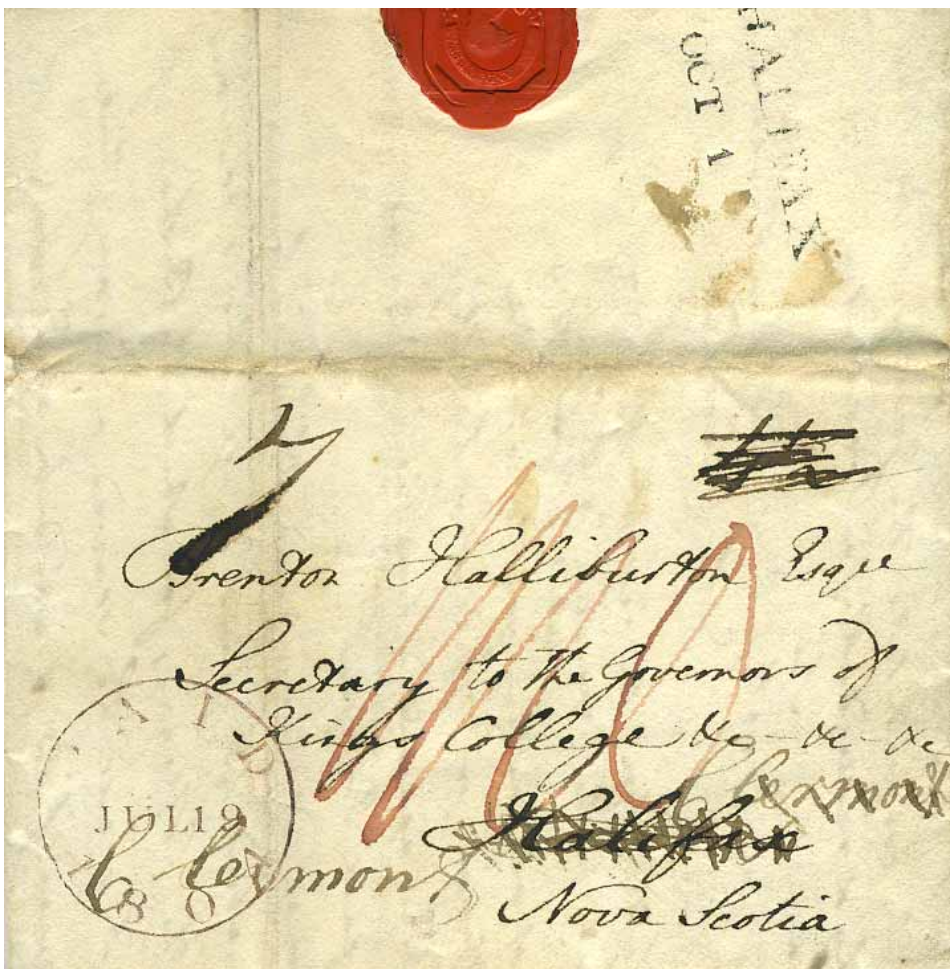 HALIFAX
OCT 1
7
Brenton Halliburton Esqre
Secretary to the Governors of
Kings College &c - &c - &c
Clermont
Halifax
Clermont
Nova Scotia
PAID
JUL 19
180